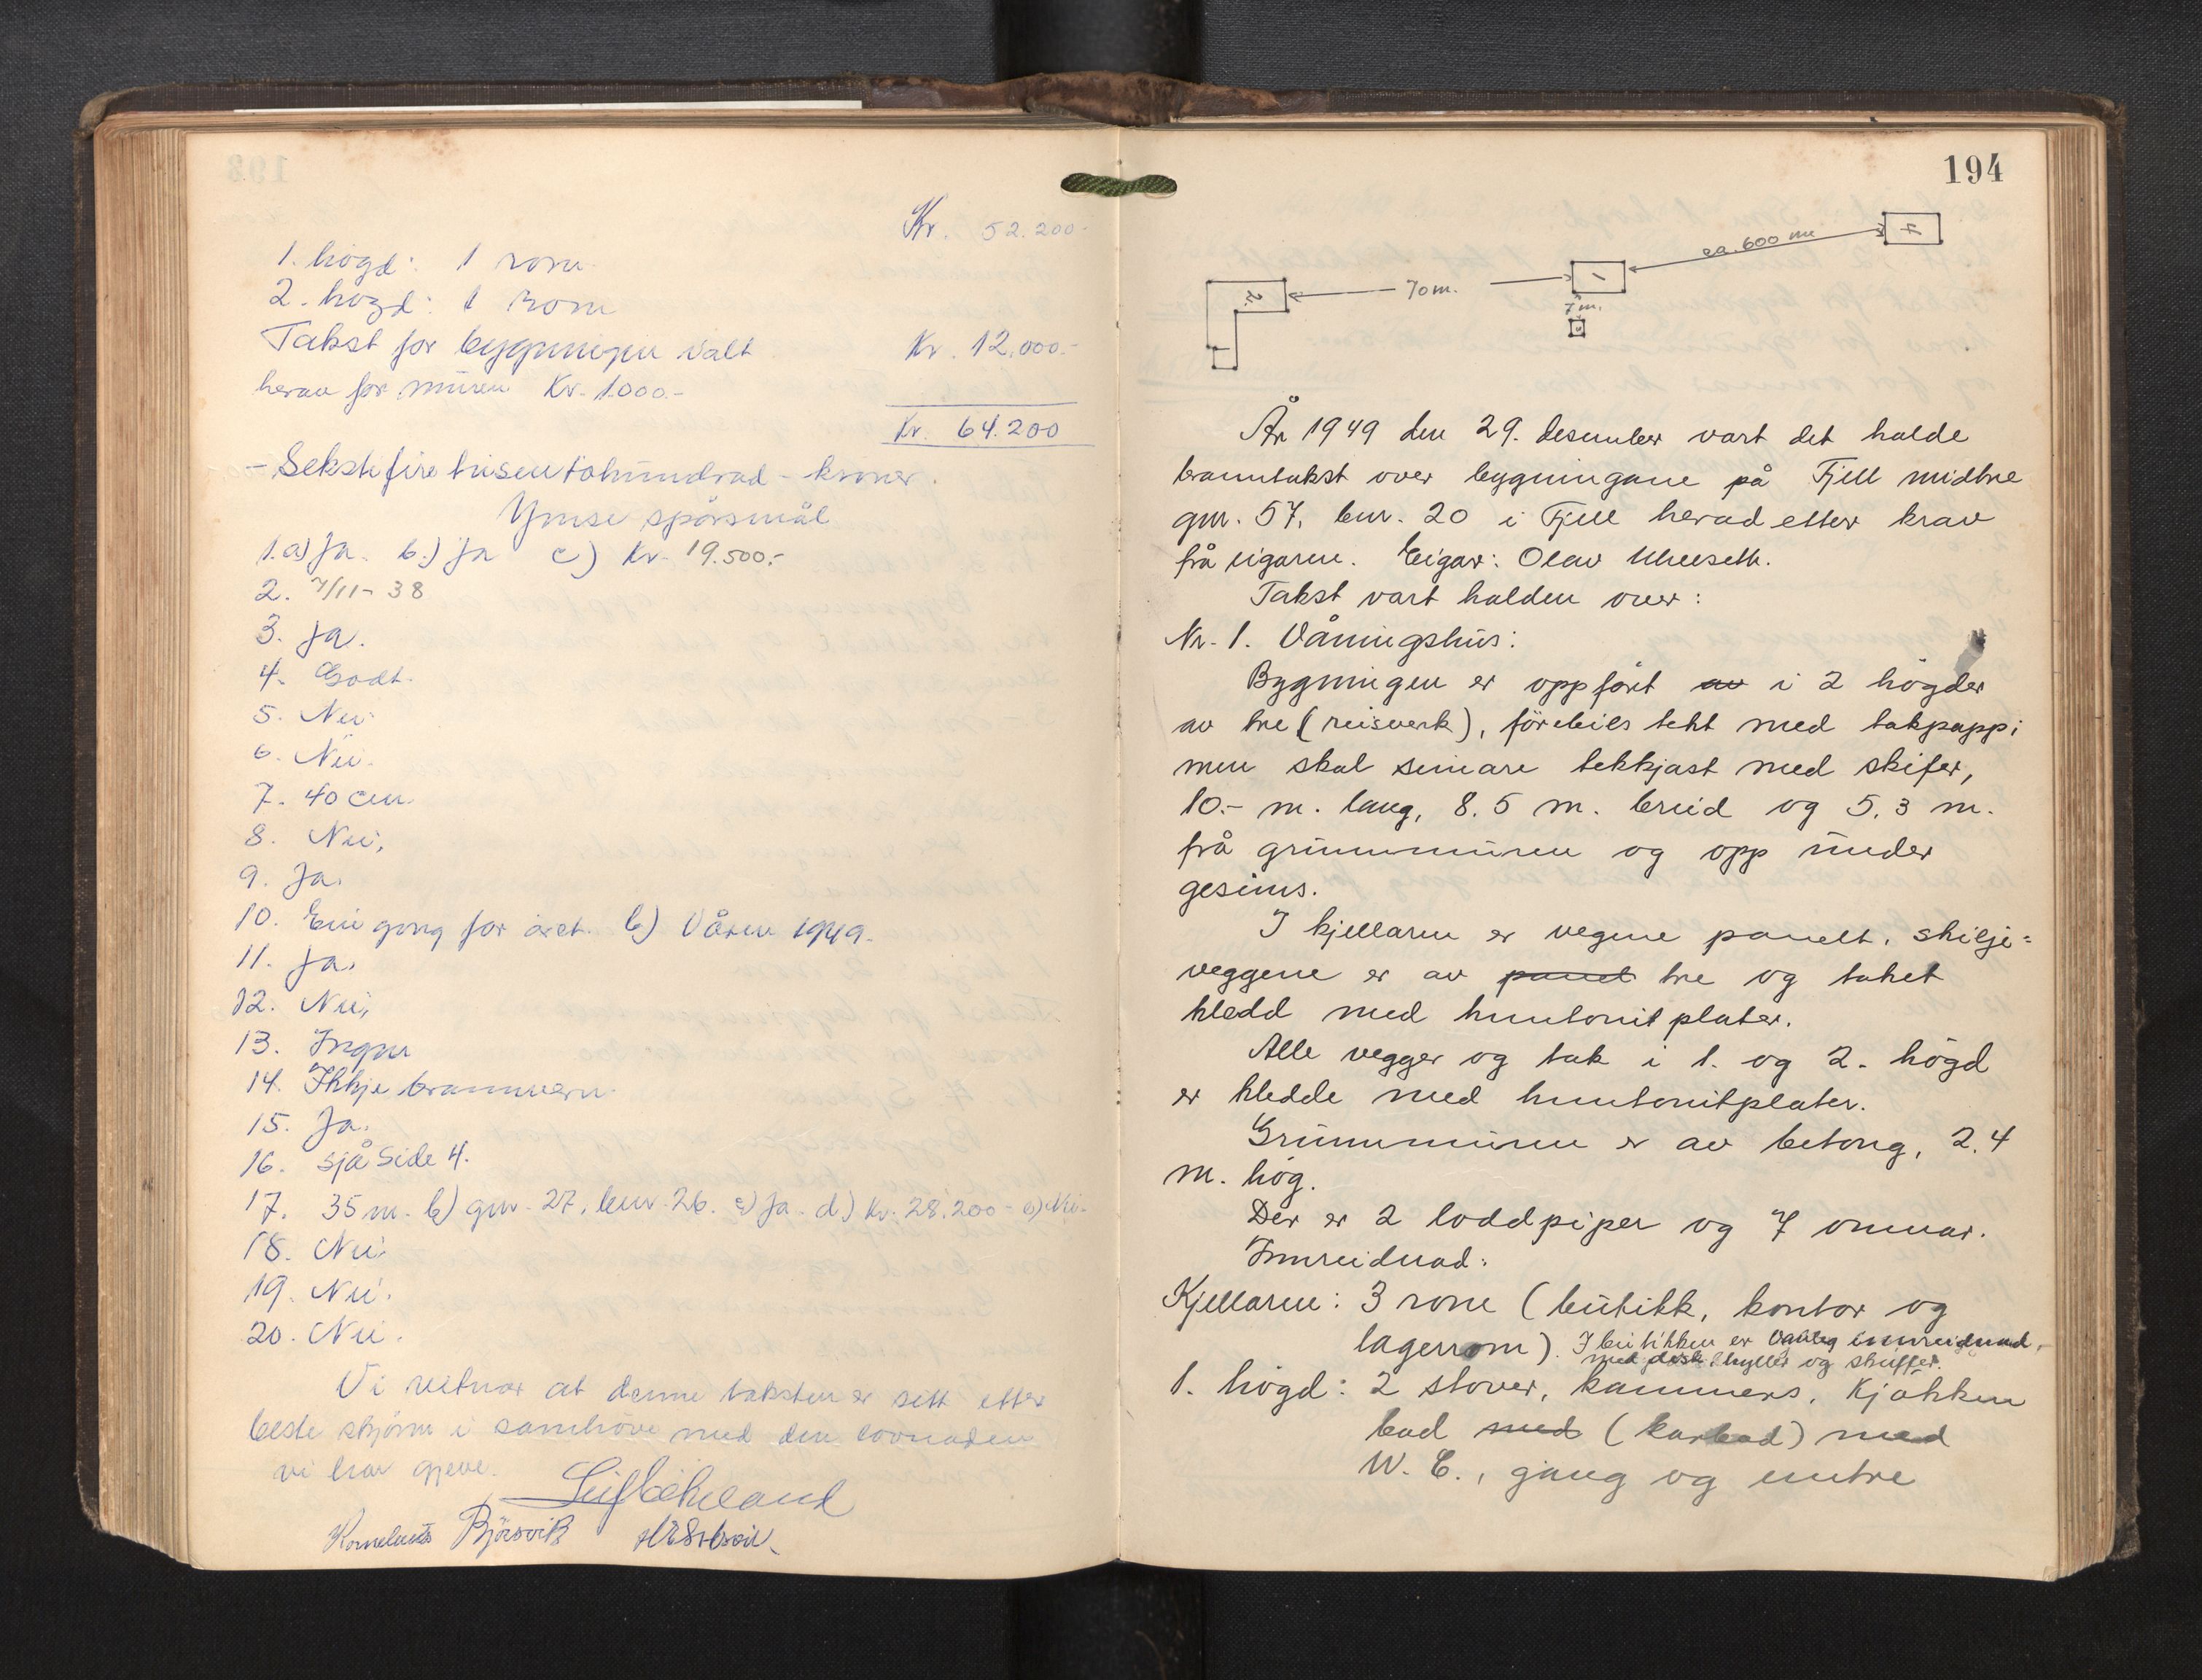 Kr. 52.200.-
1. högd: 1 rom.
2. högd: 1 rom
Takst for bygningen valt Kr. 12.000.-
herav for muren Kr. 1000.-
Kr. 64.200
- Sekstifire tusen tohundrad - kroner.
Ymse spörsmål
1. a) Ja. b.) Ja c) Kr. 19.500.-
2. 7/11-38
3. Ja.
4. Godt.
5. Nei.
6. Nei.
7. 40 cm.
8. Nei.
9. Ja.
10. Ein gong for året. b) Våren 1949.
11. Ja.
12. Nei.
13. Ingen
14. Ikkje brannvern.
15. Ja.
16. sjå side 4.
17. 35 m. b) gnr. 27, bnr. 26. c) Ja. d.) Kr. 28.200 - e) Nei.
18. Nei.
19. Nei.
20. Nei.
Vi vitnar at denne taksten er sett etter
beste skjönn i samhöve med den lovnaden
vi har gjeve.
Kornelius Björsvik
194
ca. 600 m
1
70 m.
2.
7 m.
År 1949 den 29. desember vart det halde
branntakst over bygningane på Fjell midtre
gnr. 57, bnr. 20 i Fjell herad etter krav
frå eigaren. Eigar: Olav
Takst vart halden over:
Nr. 1. Våningshus:
Bygningen er oppfört av i 2 högder
av tre (reisverk), förebils tekt med takpapp;
men skal seinare tekkjast med skifer,
10.- m. lang, 8.5 m. breid og 5,3 m.
frå grunnmuren og opp under
gesims.
I kjellaren er vegene panelt, skilje=
veggene er av panel tre og taket
kledd med huntonitplater.
Alle vegger og tak i 1. og 2. högd
er kledde med huntonitplater.
Grunnmuren er av betong, 2.4
m. hög.
Der er 2 loddpiper og 7 omnar.
Innreidnad:
Kjellaren: 3 rom (butikk, kontor og
lagerrom). I butikken er vanleg innreidnad,
med disk, hyller og skuffer.
1. högd: 2 stover, kammers, kjökken
bad med (karbad) med
W. C., gang og entre